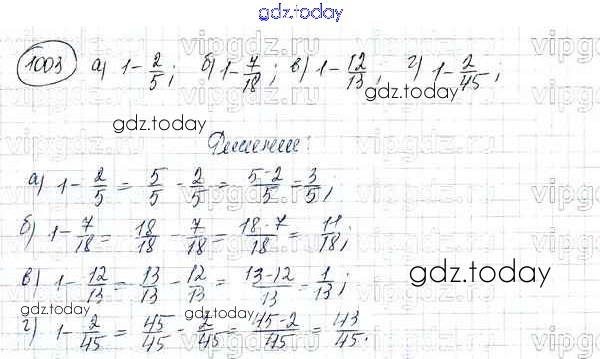 gdz.today
1003 а) 1-2/5; б) 1-7/18; в) 1-12/13; г) 1-2/45;
gdz.today
gdz.today
Решение:
а) 1-2/5 = 5/5 - 2/5 = 5-2/5 = 3/5;
б) 1-7/18 = 18/18 - 7/18 = 18-7/18 = 11/18;
в) 1-12/13 = 13/13 - 12/13 = 13-12/13 = 1/13;
gdz.today
г) 1-2/45 = 45/45 - 2/45 = 45-2/45 = 43/45.
vipgdz.ru